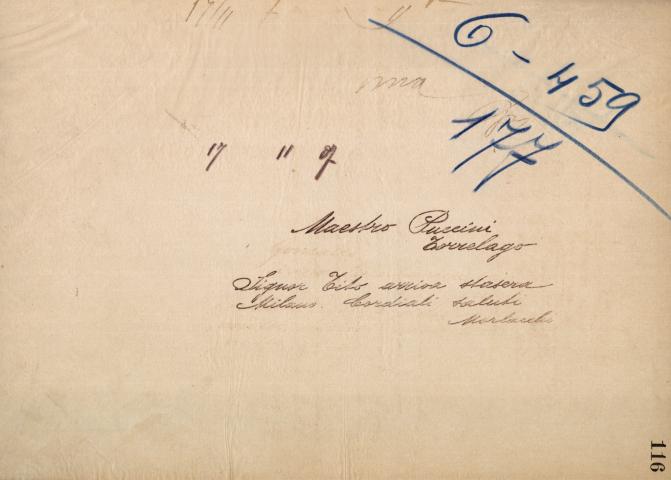 17/11
6-459
177
17 11 07
Maestro Puccini
Torrelago
Signor Tito arriva stasera
Milano. Cordiali saluti
116